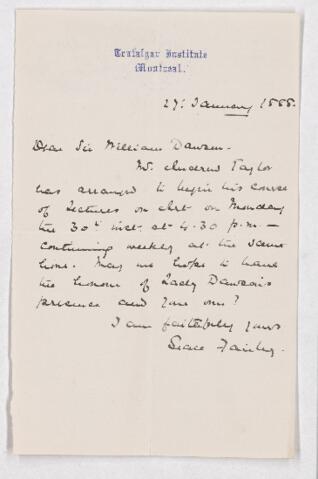 Trafalgar Institute
Montreal.
27. January 1888.
Dear Sir William Dawson.
Mr. Andrew Taylor
has arranged to begin his course
of Lectures on Art on Monday
the 30th inst. at 4.30 p.m. —
continuing weekly at the same
hour. May we hope to have
the honour of Lady Dawson's
presence and your own?
I am faithfully yours
Grace Fairley.